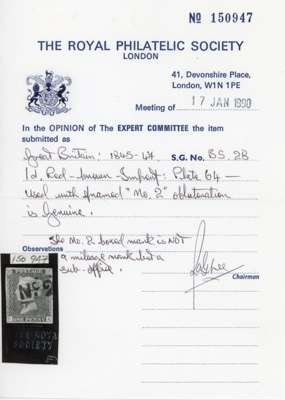 Nº 150947
THE ROYAL PHILATELIC SOCIETY
LONDON
41, Devonshire Place,
London, W1N 1PE
Meeting of 17 JAN 1990
In the OPINION of The EXPERT COMMITTEE the item
submitted as
Great Britain: 1845-47. S.G. No. BS. 2B
1d. Red-brown Imperf: Plate 64 —
used with framed "No. 2" obliteration
is genuine.
Observations
The No. 2 boxed mark is NOT
a mileage mark but a
sub-office.
Chairman
150 947
POSTAGE
No 2
ONE PENNY
SOCIETY